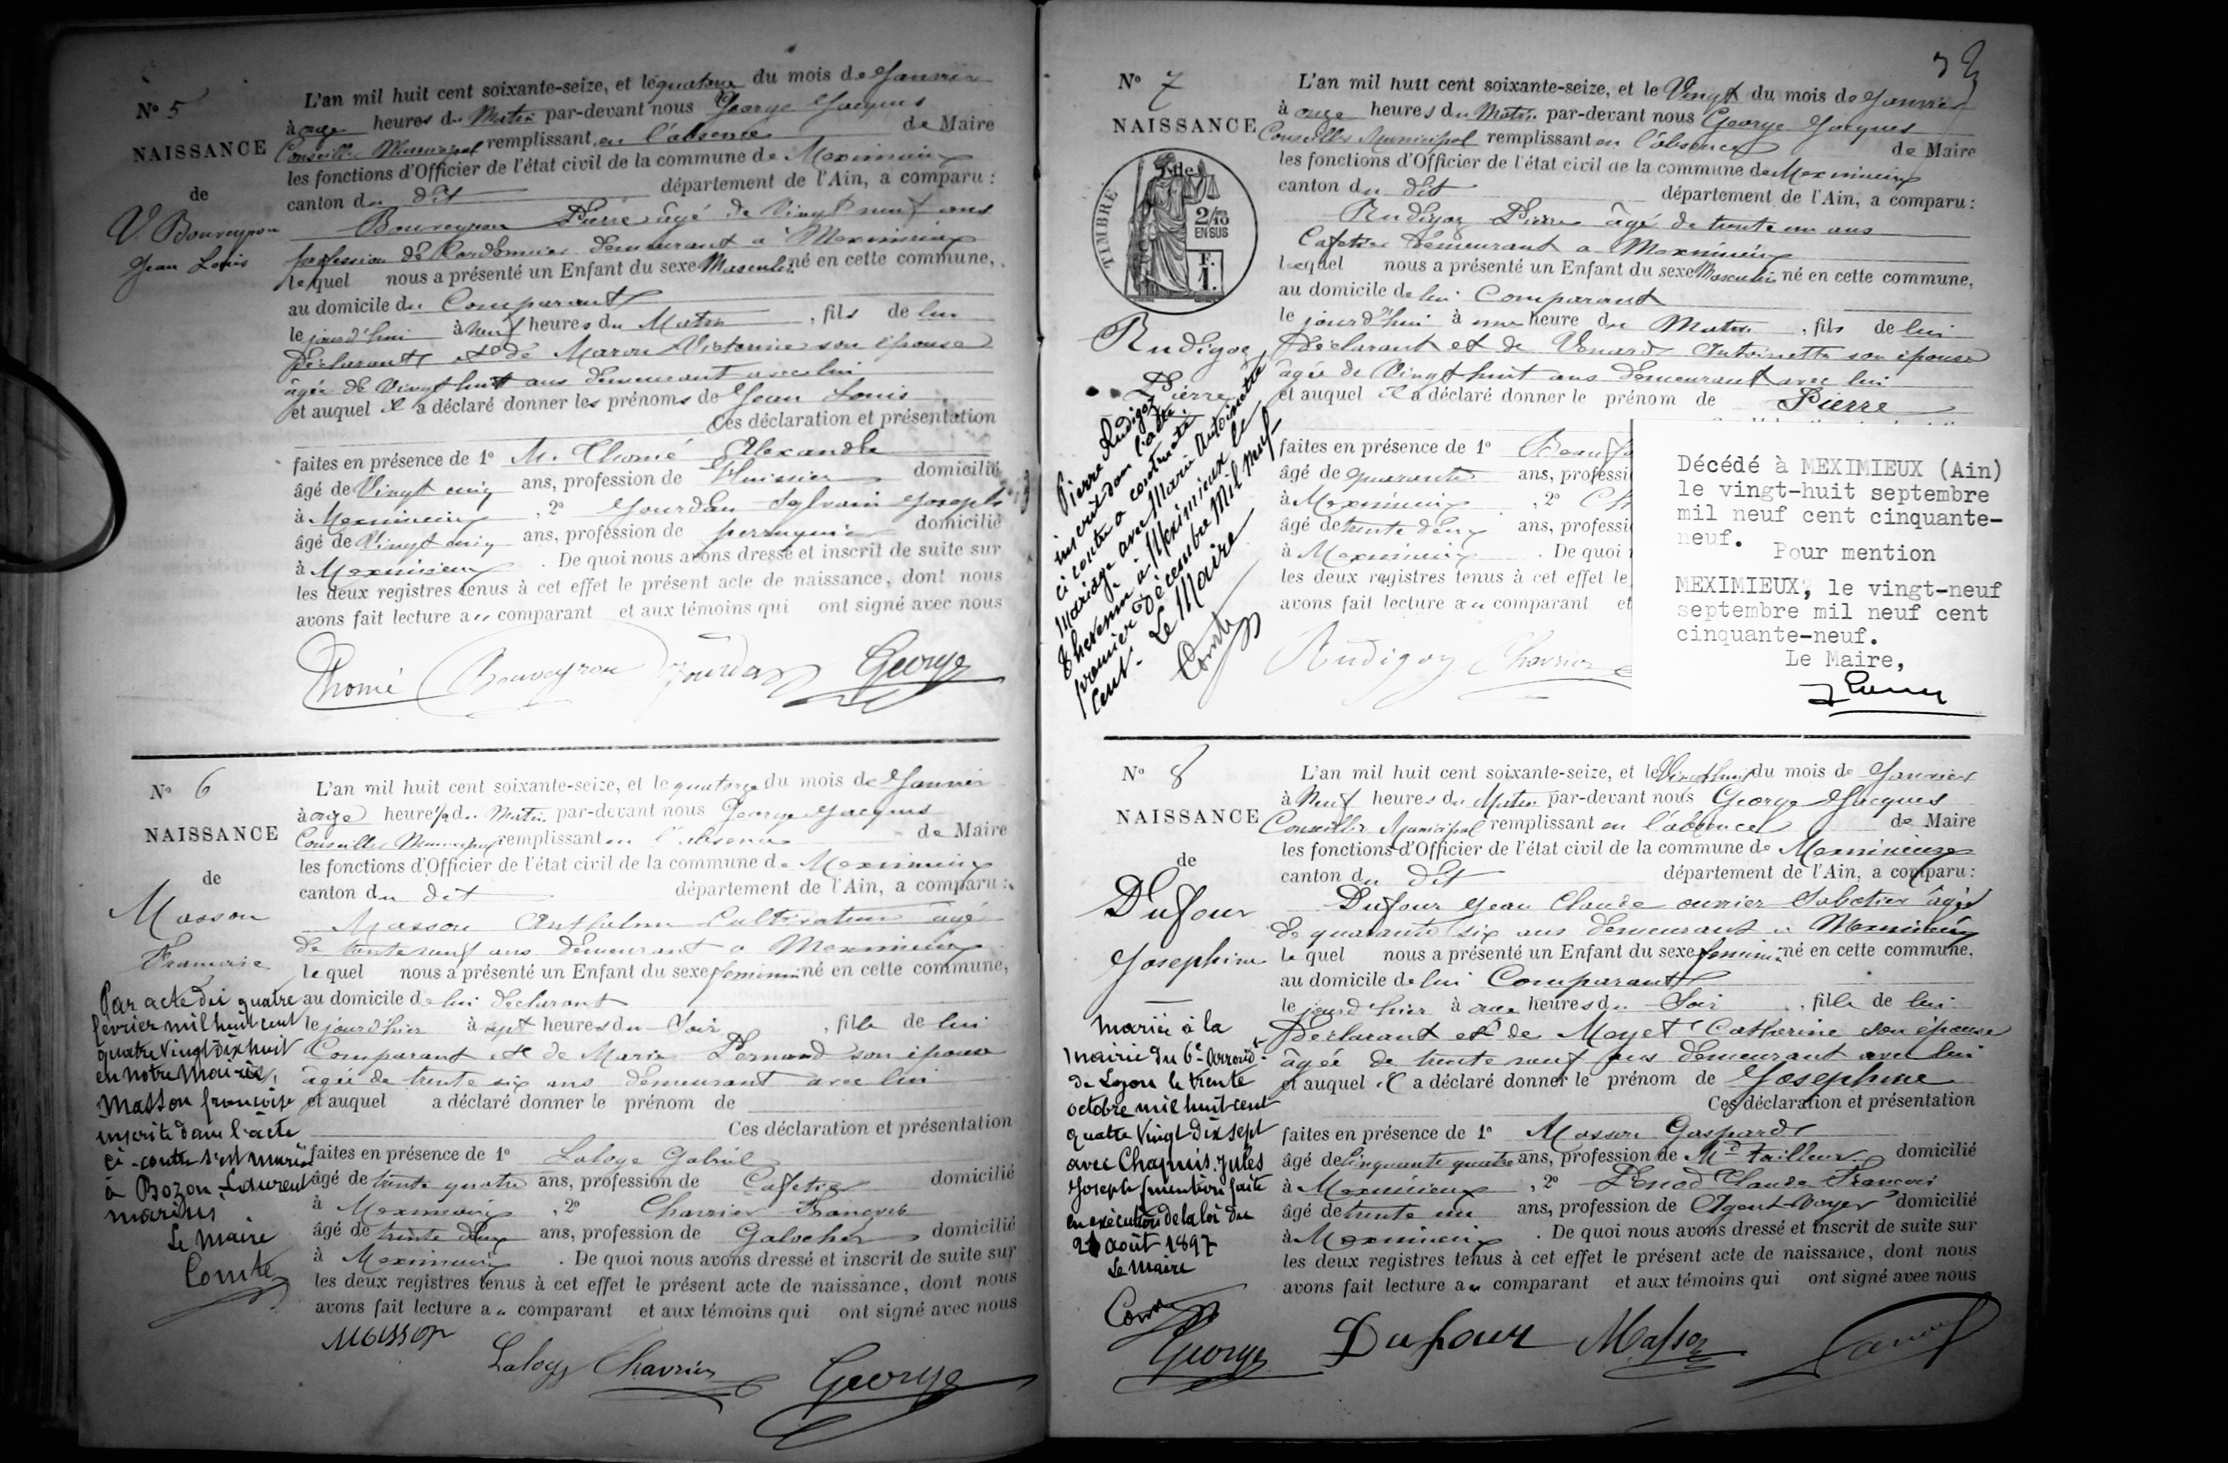 N° 5
NAISSANCE
de
V. Bouveyron
Jean Louis
L'an mil huit cent soixante-seize, et le quatorze du mois de Janvier
à onze heures du Matin par-devant nous George Jacques
Conseiller Municipal remplissant en l'absence de Maire
les fonctions d'Officier de l'état civil de la commune de Meximieux
canton du dit département de l'Ain, a comparu :
Bouveyron Pierre âgé de Vingt neuf ans
profession de Cordonnier demeurant à Meximieux
lequel nous a présenté un Enfant du sexe Masculin né en cette commune,
au domicile du Comparant
le jourd'hui à neuf heures du Matin, fils de lui
Déclarant et de Maron Victorine son épouse
âgée de Vingt huit ans demeurant avec lui
et auquel il a déclaré donner les prénoms de Jean Louis
Ces déclaration et présentation
faites en présence de 1° M. Thomé Alexandre
âgé de Vingt cinq ans, profession de Huissier domicilié
à Meximieux, 2° Jourdan Sylvain Joseph
âgé de Vingt cinq ans, profession de perruquier domicilié
à Meximieux. De quoi nous avons dressé et inscrit de suite sur
les deux registres tenus à cet effet le présent acte de naissance, dont nous
avons fait lecture au comparant et aux témoins qui ont signé avec nous
Thomé Bouveyron Jourdan George
N° 6
NAISSANCE
de
Masson
Par acte du quatre
février mil huit cent
quatre vingt dix huit
en notre mairie,
Masson françoise
inscrite dans l'acte
ci-contre s'est mariée
à Bozon, Laurent
marius
Le Maire
Comte
L'an mil huit cent soixante-seize, et le quatorze du mois de Janvier
à onze heures du Matin par-devant nous George Jacques
Conseiller Municipal remplissant en l'absence de Maire
les fonctions d'Officier de l'état civil de la commune de Meximieux
canton du dit département de l'Ain, a comparu :
Masson Anthelme Cultivateur âgé
de trente neuf ans demeurant à Meximieux
lequel nous a présenté un Enfant du sexe féminin né en cette commune,
au domicile de lui déclarant
le jourd'hier à sept heures du Soir, fille de lui
Comparant et de Marie Pernand son épouse
âgée de trente six ans demeurant avec lui
et auquel a déclaré donner le prénom de
Ces déclaration et présentation
faites en présence de 1° Laloge Gabriel
âgé de trente quatre ans, profession de Cafetier domicilié
à Meximieux, 2° Charrier François
âgé de trente deux ans, profession de Galocher domicilié
à Meximieux. De quoi nous avons dressé et inscrit de suite sur
les deux registres tenus à cet effet le présent acte de naissance, dont nous
avons fait lecture au comparant et aux témoins qui ont signé avec nous
Masson
Laloge Charrier George
N° 7
NAISSANCE
TIMBRE
2/10
EN SUS
F.
1.
Rudigoz
Pierre
Pierre Rudigoz
inscrit dans l'acte
ci contre a contracté
mariage avec Marie Antoinette
Thevenin à Meximieux le
premier Décembre Mil neuf
cent.
Le Maire
Comte
L'an mil huit cent soixante-seize, et le Vingt du mois de Janvier
à onze heures du Matin par-devant nous George Jacques
Conseiller Municipal remplissant en l'absence de Maire
les fonctions d'Officier de l'état civil de la commune de Meximieux
canton du dit département de l'Ain, a comparu :
Rudigoz Pierre âgé de trente un ans
Cafetier demeurant à Meximieux
lequel nous a présenté un Enfant du sexe Masculin né en cette commune,
au domicile de lui Comparant
le jourd'hui à une heure du Matin, fils de lui
Déclarant et de Venard Antoinette son épouse
âgée de Vingt huit ans demeurant avec lui
et auquel il a déclaré donner le prénom de Pierre
faites en présence de 1°
âgé de quarante ans, professi
à Meximieux, 2°
âgé de trente deux ans, professi
à Meximieux. De quoi
les deux registres tenus à cet effet le
avons fait lecture au comparant et
Rudigoz Charrier
Décédé à MEXIMIEUX (Ain)
le vingt-huit septembre
mil neuf cent cinquante-
neuf.
Pour mention
MEXIMIEUX, le vingt-neuf
septembre mil neuf cent
cinquante-neuf.
Le Maire,
N° 8
NAISSANCE
de
Dufour
Josephine
mariée à la
mairie du 6e arrondt
de Lyon le trente
octobre mil huit cent
quatre vingt dix sept
avec Chapuis Jules
Joseph (mention faite
en exécution de la loi du
août 1897
Le Maire
L'an mil huit cent soixante-seize, et le Vingt huit du mois de Janvier
à Neuf heures du Matin par-devant nous George Jacques
Conseiller Municipal remplissant en l'absence de Maire
les fonctions d'Officier de l'état civil de la commune de Meximieux
canton du dit département de l'Ain, a comparu :
Dufour Jean Claude ouvrier Sabotier âgé
de quarante six ans demeurant à Meximieux
lequel nous a présenté un Enfant du sexe féminin né en cette commune,
au domicile de lui Comparant
le jourd'hier à onze heures du Soir, fille de lui
Déclarant et de Moyet Catherine son épouse
âgée de trente neuf ans demeurant avec lui
et auquel il a déclaré donner le prénom de Josephine
Ces déclaration et présentation
faites en présence de 1° Masson Gaspard
âgé de Cinquante quatre ans, profession de Md tailleur domicilié
à Meximieux, 2° Claude François
âgé de trente un ans, profession de Agent-Voyer domicilié
à Meximieux. De quoi nous avons dressé et inscrit de suite sur
les deux registres tenus à cet effet le présent acte de naissance, dont nous
avons fait lecture au comparant et aux témoins qui ont signé avec nous
George Dufour Masson